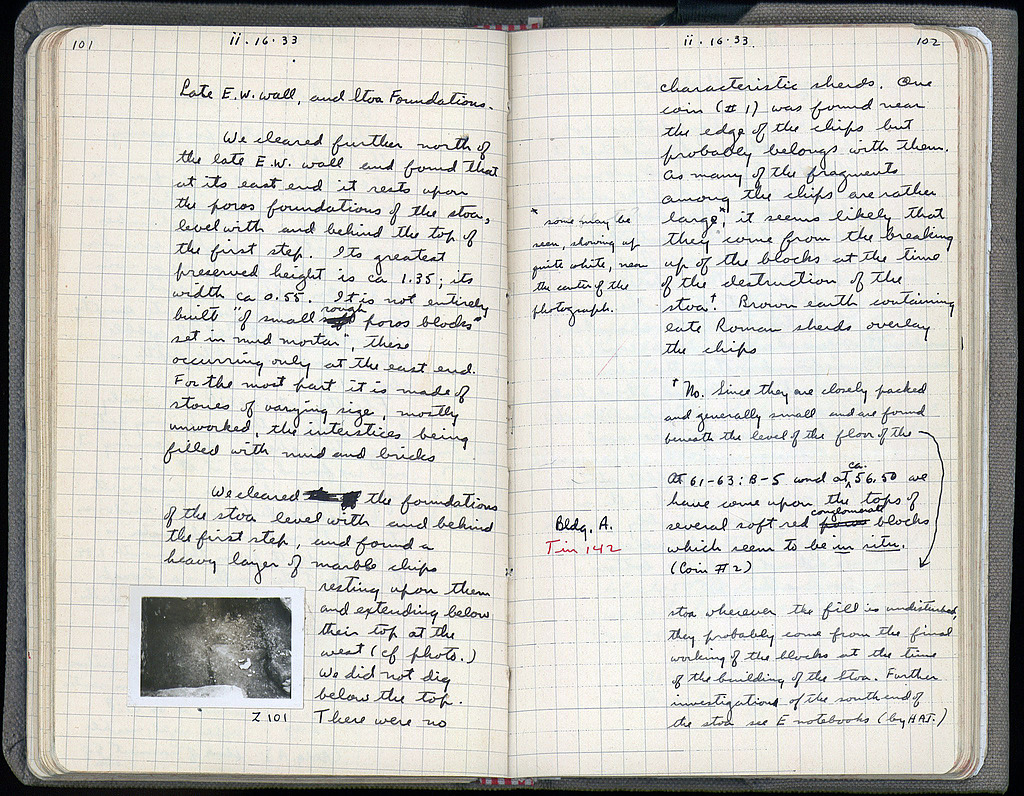 101
ii. 16. 33
Late E.W. wall, and Stoa Foundations.
We cleared further north of
the late E.W. wall and found that
at its east end it rests upon
the poros foundations of the stoa,
level with and behind the top of
the first step. Its greatest
preserved height is ca 1.35; its
width ca 0.55. It is not entirely
built "of small rough poros blocks"
set in mud mortar", these
occurring only at the east end.
For the most part it is made of
stones of varying size, mostly
unworked, the interstices being
filled with mud and bricks
We cleared the foundations
of the stoa level with and behind
the first step, and found a
heavy layer of marble chips
resting upon them
and extending below
their top at the
west (cf photo.)
We did not dig
below the top.
There were no
Z 101
ii. 16. 33.
102
characteristic sherds. One
coin (#1) was found near
the edge of the chips but
probably belongs with them.
As many of the fragments
among the chips are rather
large,* it seems likely that
they come from the breaking
up of the blocks at the time
of the destruction of the
stoa.† Brown earth containing
late Roman sherds overlay
the chips
* some may be
seen, showing up
quite white, near
the center of the
photograph.
† No. Since they are closely packed
and generally small and are found
beneath the level of the floor of the
Bldg. A.
Tin 142
At 61-63: B-5 and at ca. 56.50 we
have come upon the tops of
several soft red conglomerate blocks
which seem to be in situ.
(Coin #2)
stoa wherever the fill is undisturbed,
they probably come from the final
working of the blocks at the time
of the building of the Stoa. Further
investigations of the south end of
the stoa see E notebooks (by HAT.)